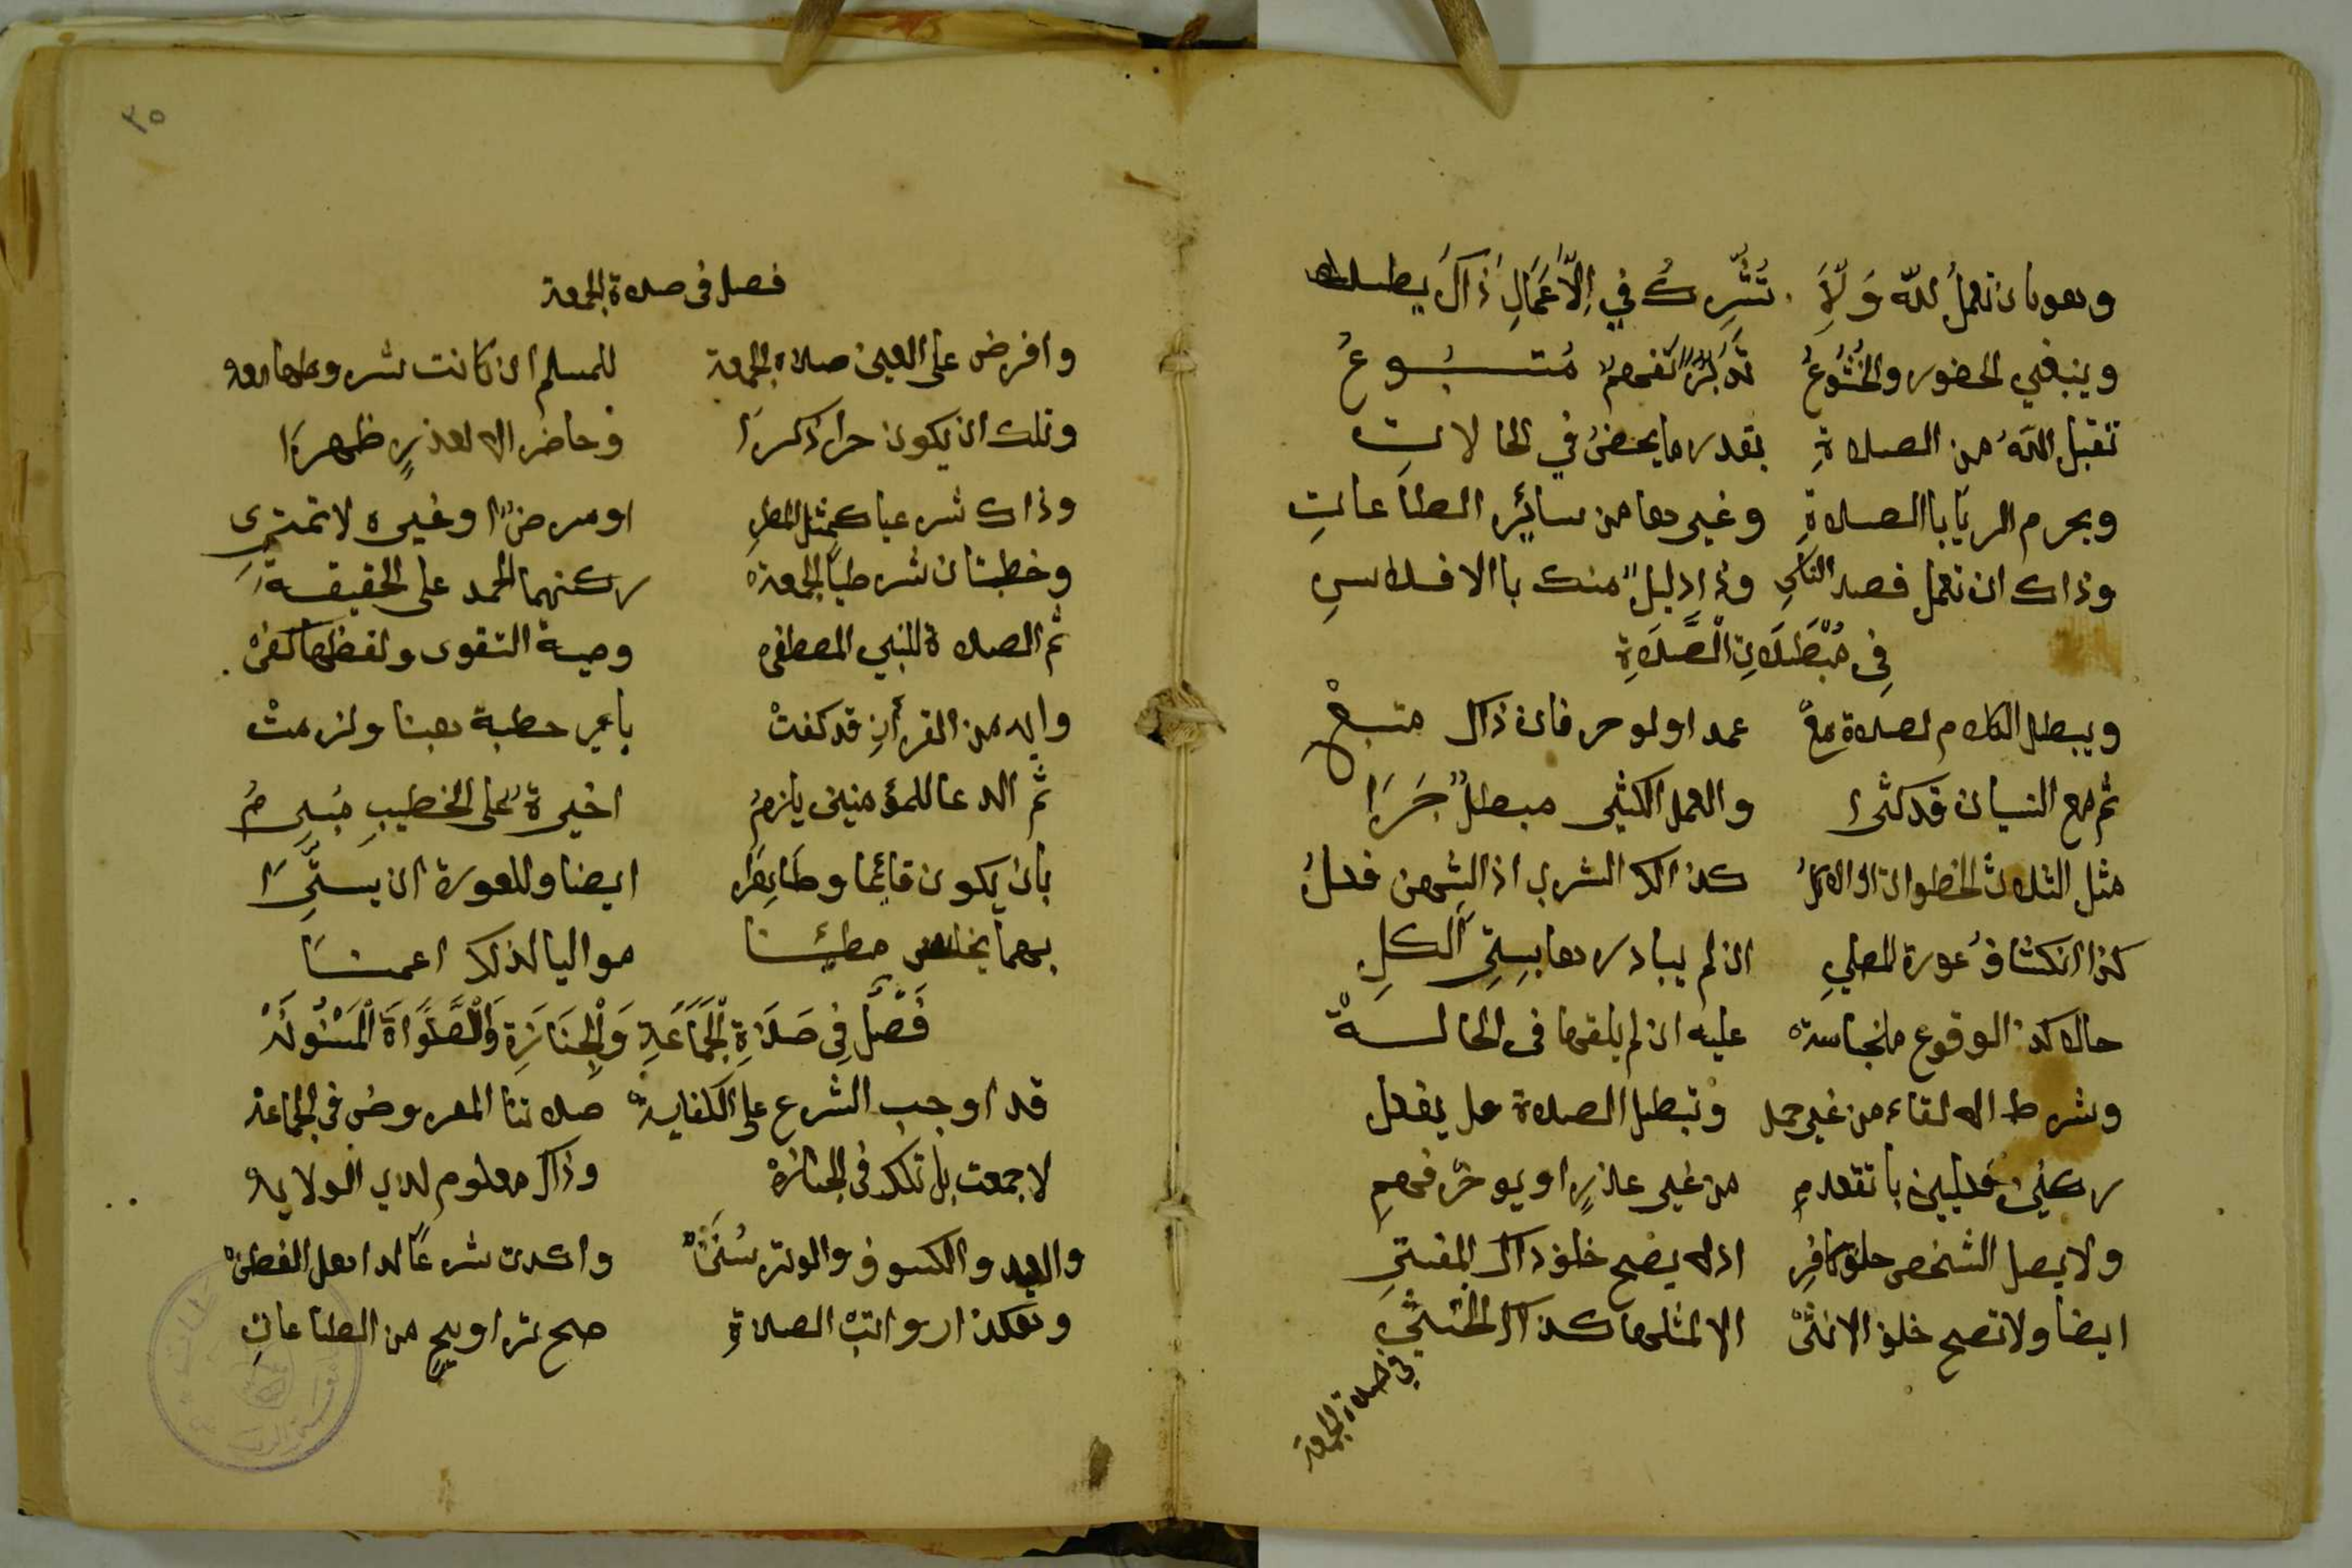 وهو بان تعمل لله ولا تشرك في الاعمال ذاك يطلب
وينبغي الحضور والخُشُوعُ تدبرٌ تفهمٌ متبوعُ
تقبل اللهُ من الصلاةِ بقدر ما يحضرُ في الحالاتِ
ويحرم الريا باالصلاةِ وغيرها من سائرِ الطاعاتِ
وذاك ان تعمل قصد الناسِ وذا دليلٌ منك باالافلاسِ
فِي مُبْطَلَاتِ الصَّلَاةِ
ويبطل الكلام لصلاة معْ عمد اولو حرفان ذاك متبعْ
ثم مع النسيان قد كثرا والعمل الكثير مبطلٌ جَرَا
مثل الثلاث الخطوات او الاكلُ كذالك الشرب اذا لشي من فعلُ
كذا انكشافُ عورة المصلي ان لم يبادرها بسترِ الكلِ
حالا كذا الوقوع ما نجاسة عليه ان لم يلقها في الحالةْ
وشرط الالقاء من غير حمل وتبطل الصلاة هل يفعل
ركنين فعليين با تقدمِ من غير عذرٍ او يوخر فهمِ
ولا يصل الشخص خلف كافرِ اذ لا يصح خلف ذاك المفتري
ايضا ولا تصح خلف الانثىْ الا لمثلها كذاك الخنثى
في صلاة الجمعة
٣٥
فصل في صلاة الجمعة
وافرض على العين صلاة الجمعة للمسلم ان كانت شروطها معه
وتلك ان يكون حرا ذكرا وحاضرا لا لعذرٍ ظهرا
وذاك شرعا كمثل المطرِ او مرضٍ او غيره لا تمتري
وخطبتان شرطيا الجمعة ركنهما الحمد على الحقيقةِ
ثم الصلاة للنبي المصطفى وصية التقوى ولفظها كفىْ
وايه من القرأنِ قد كفتْ باي خطبة هبنا ولزمتْ
ثم الدعا للمؤمنين يلزمُ اخيرة على الخطيبِ مبرمُ
بان يكون قائما وطاهرا ايضا وللعورة ان يستّرا
بهما يجلس مطئنا مواليا لذلك اعمنا
فَصْل فِي صَلَاةِ الْجَمَاعَةِ وَالْجِنَازَةِ وَالْصَّلَوَاةَ الْمَسْنُونَهْ
قد اوجب الشرع على الكفايةْ صلاتنا المفروض في الجماعة
لا جمعت بل تلك في الجنازهْ وذاك معلوم لدي الولايه
والعيد والكسوف والوتر سُنَنْ واكدت شرعًا لدا اهل الفطنْ
وهكذا رواتبْ الصلاةِ صح تراويحٍ من الطاعاتِ